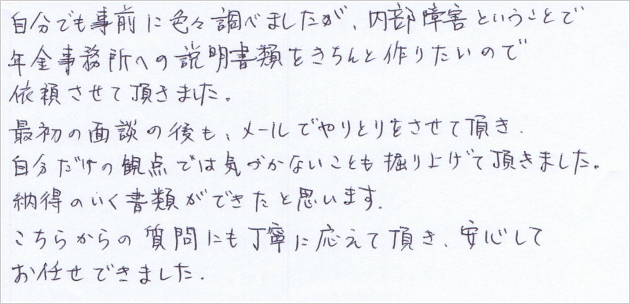 自分でも事前に色々調べましたが、内部障害ということで
年金事務所への説明書類をきちんと作りたいので
依頼させて頂きました。
最初の面談の後も、メールでやりとりをさせて頂き、
自分だけの観点では気づかないことも掘り上げて頂きました。
納得のいく書類ができたと思います。
こちらからの質問にも丁寧に応えて頂き、安心して
お任せできました。